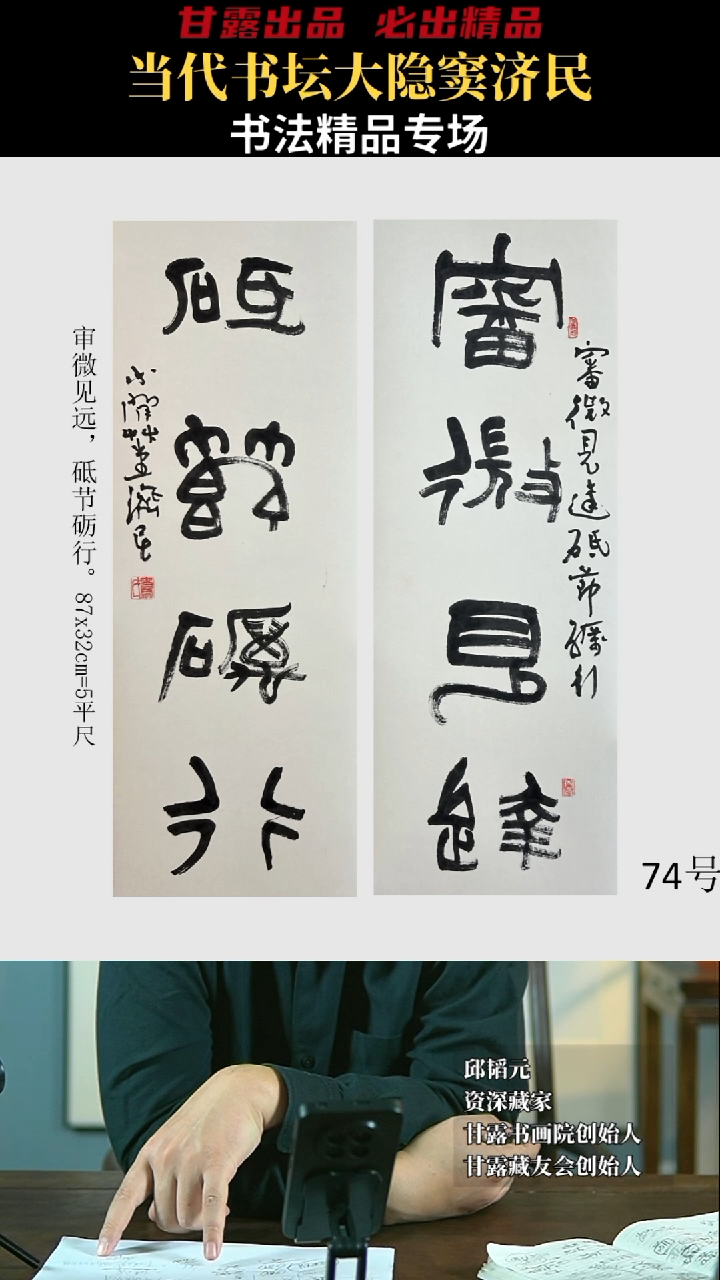 甘露出品 必出精品
当代书坛大隐窦济民
书法精品专场
審微見遠
審微見遠砥節礪行
砥節礪行
濟民
审微见远，砥节砺行。87x32cm=5平尺
74号
邱韬元
资深藏家
甘露书画院创始人
甘露藏友会创始人